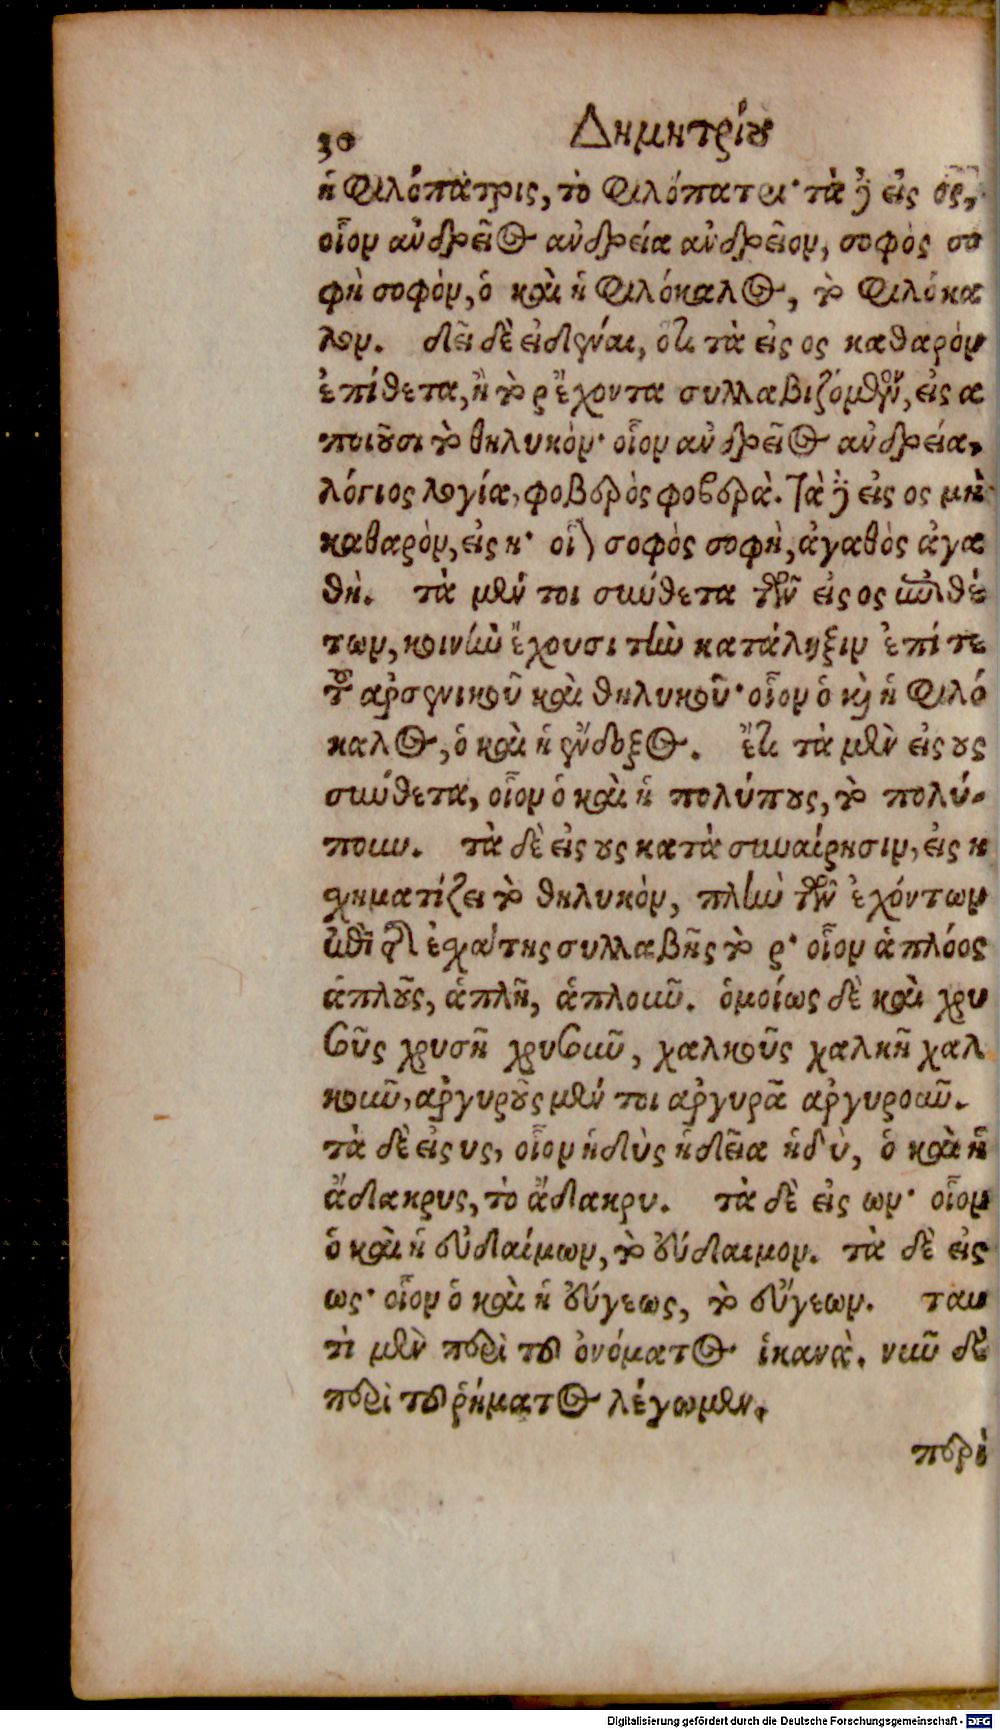 30 Δημητρίου
ἡ φιλόπατρις, τὸ φιλόπατρι· τὰ δὲ εἰς ος,
οἷον ἀνδρεῖος ἀνδρεία ἀνδρεῖον, σοφὸς σο
φὴ σοφὸν, ὁ καὶ ἡ φιλόκαλος, τὸ φιλόκα
λον. δεῖ δὲ εἰδέναι, ὅτι τὰ εἰς ος καθαρὸν
ἐπίθετα, ἢ τὸ ρ ἔχοντα συλλαβιζόμενον, εἰς α
ποιοῦσι τὸ θηλυκόν· οἷον ἀνδρεῖος ἀνδρεία,
λόγιος λογία, φοβερὸς φοβερὰ. Τὰ δὲ εἰς ος μὴ
καθαρὸν, εἰς η· οἷον σοφὸς σοφὴ, ἀγαθὸς ἀγα
θὴ. τὰ μέν τοι σύνθετα τῶν εἰς ος ἐπιθέ
των, κοινὴν ἔχουσι τὴν κατάληξιν ἐπί τε
τοῦ ἀρσενικοῦ καὶ θηλυκοῦ· οἷον ὁ καὶ ἡ φιλό
καλος, ὁ καὶ ἡ ἔνδοξος. ἔτι τὰ μὲν εἰς ους
σύνθετα, οἷον ὁ καὶ ἡ πολύπους, τὸ πολύ-
πουν. τὰ δὲ εἰς ους κατὰ συναίρησιν, εἰς η
σχηματίζει τὸ θηλυκὸν, πλὴν τῶν ἐχόντων
ἐπὶ τῆς ἐσχάτης συλλαβῆς τὸ ρ· οἷον ἁπλόος
ἁπλοῦς, ἁπλῆ, ἁπλοῦν. ὁμοίως δὲ καὶ χρυ
σοῦς χρυσῆ χρυσοῦν, χαλκοῦς χαλκῆ χαλ
κοῦν, ἀργυροῦς μέν τοι ἀργυρᾶ ἀργυροῦν.
τὰ δὲ εἰς υς, οἷον ἡδὺς ἡδεῖα ἡδὺ, ὁ καὶ ἡ
ἄδακρυς, τὸ ἄδακρυ. τὰ δὲ εἰς ων· οἷον
ὁ καὶ ἡ εὐδαίμων, τὸ εὔδαιμον. τὰ δὲ εἰς
ως· οἷον ὁ καὶ ἡ εὔγεως, τὸ εὔγεων. ταυ
τὶ μὲν περὶ τοῦ ὀνόματος ἱκανὰ. νῦν δὲ
περὶ τοῦ ῥήματος λέγωμεν.
περὶ
Digitalisierung gefördert durch die Deutsche Forschungsgemeinschaft - DFG